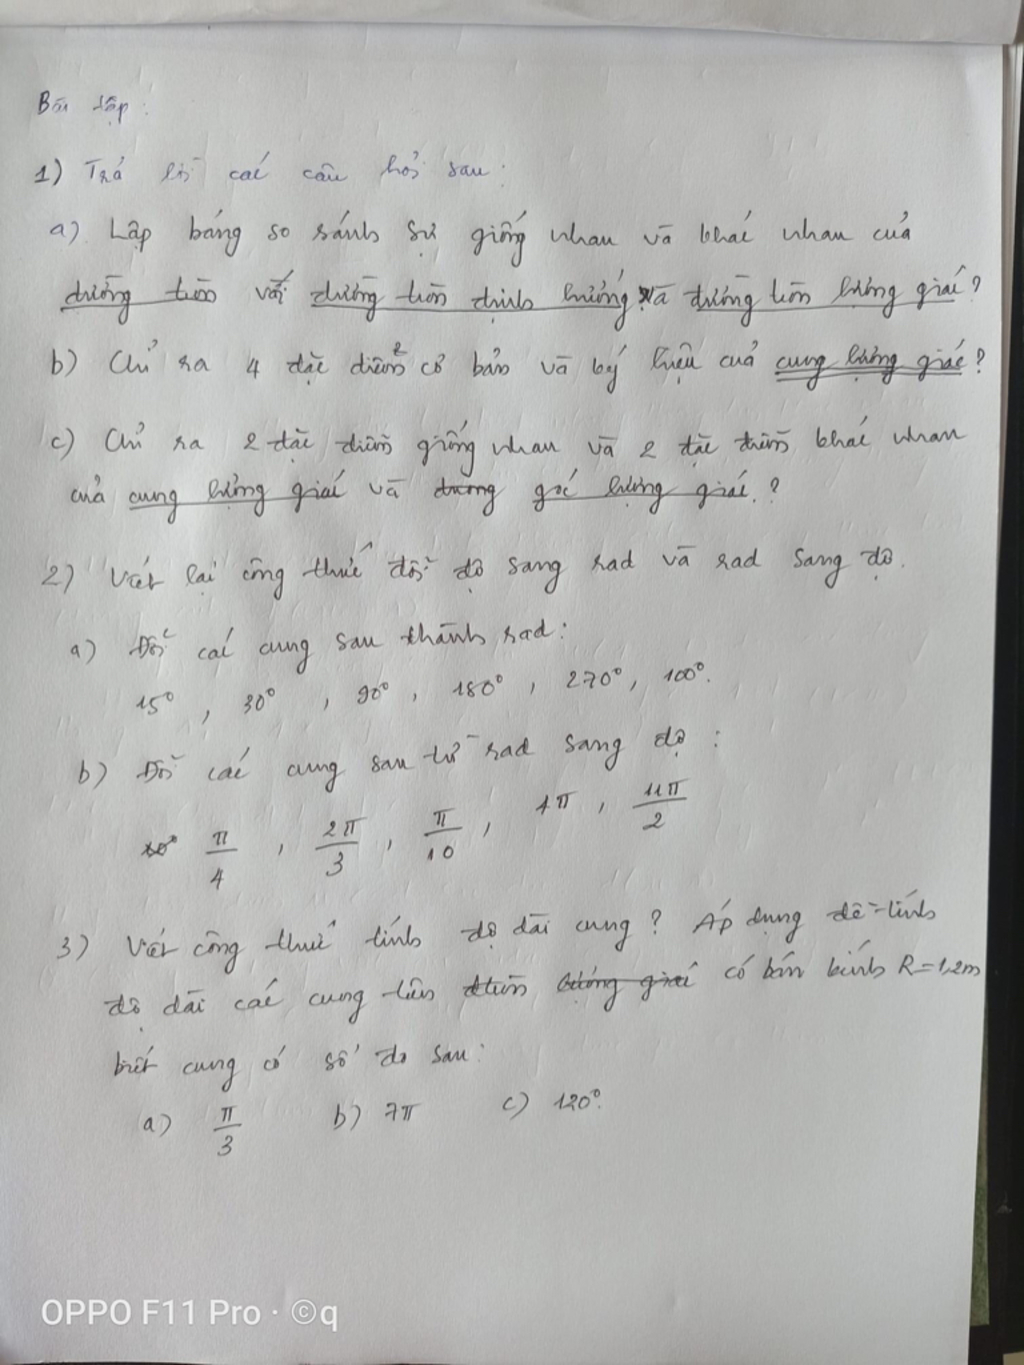 Bài tập:
1) Trả lời các câu hỏi sau:
a) Lập bảng so sánh sự giống nhau và khác nhau của
đường tròn với đường tròn định hướng và đường tròn lượng giác?
b) Chỉ ra 4 đặc điểm cơ bản và ký hiệu của cung lượng giác?
c) Chỉ ra 2 đặc điểm giống nhau và 2 đặc điểm khác nhau
của cung lượng giác và góc lượng giác?
2) Viết lại công thức đổi độ sang rad và rad sang độ.
a) Đổi các cung sau thành rad:
15°, 30°, 90°, 180°, 270°, 100°.
b) Đổi các cung sau từ rad sang độ:
π/4, 2π/3, π/10, 1π, 11π/2
3) Viết công thức tính độ dài cung? Áp dụng để tính
độ dài các cung trên đtròn có bán kính R=1,2m
biết cung có số đo sau:
a) π/3 b) 7π c) 120°.
OPPO F11 Pro · ©q